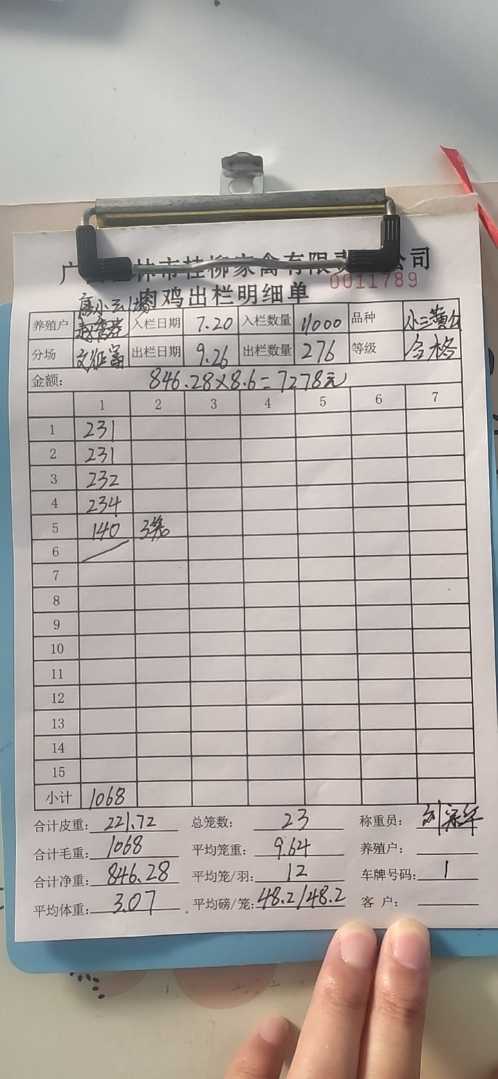 广 林市桂柳家禽有限责 公司
0011789
肉鸡出栏明细单
养殖户 入栏日期 7.20 入栏数量 11000 品种
分场 出栏日期 9.26 出栏数量 276 等级 合格
金额: 846.28×8.6=7278元
1 2 3 4 5 6 7
1 231
2 231
3 232
4 234
5 140 3笼
6
7
8
9
10
11
12
13
14
15
小计 1068
合计皮重: 221.72 总笼数: 23 称重员:
合计毛重: 1068 平均笼重: 9.64 养殖户:
合计净重: 846.28 平均笼/羽: 12 车牌号码: 1
平均体重: 3.07 平均磅/笼: 48.2/48.2 客 户: